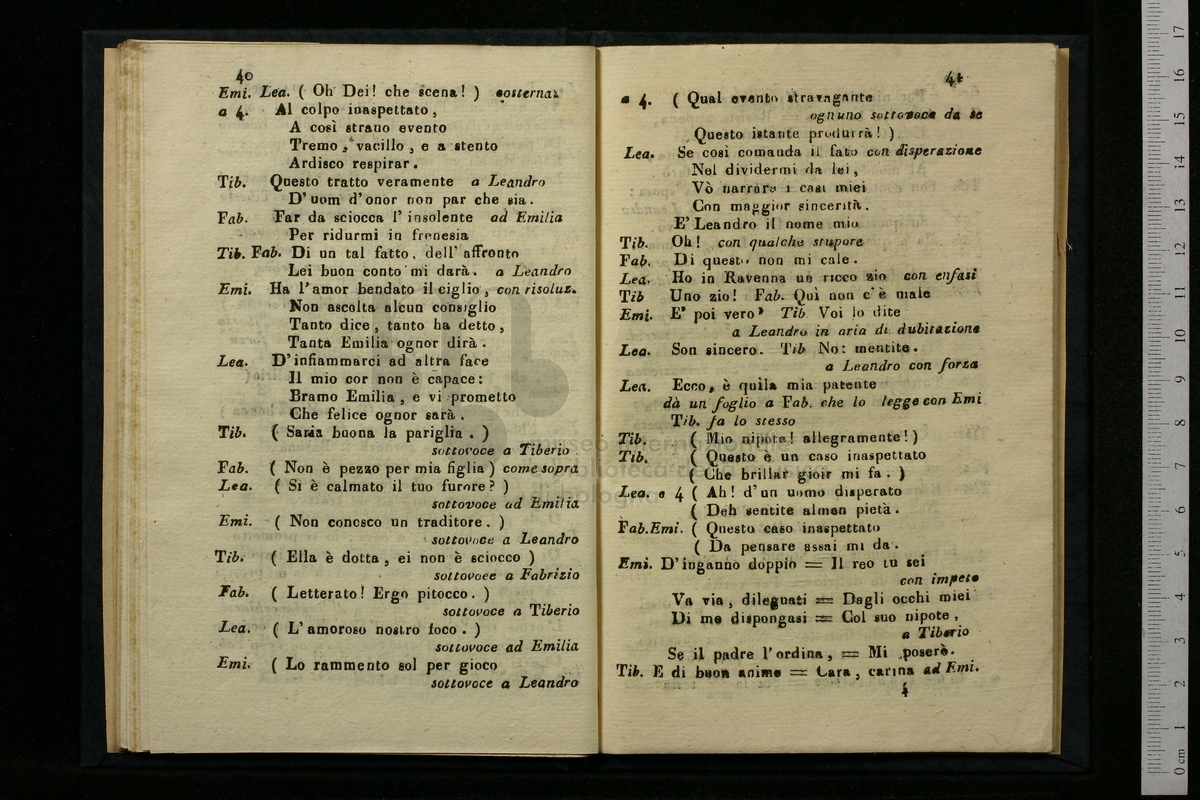 40
Emi. Lea. ( Oh Dei! che scena! )
a 4. Al colpo inaspettato,
A così strano evento
Tremo, vacillo, e a stento
Ardisco respirar.
Tib. Questo tratto veramente a Leandro
D'uom d'onor non par che sia.
Fab. Far da sciocca l'insolente ad Emilia
Per ridurmi in frenesia
Tib. Fab. Di un tal fatto, dell'affronto
Lei buon conto mi darà. a Leandro
Emi. Ha l'amor bendato il ciglio, con risoluz.
Non ascolta alcun consiglio
Tanto dice, tanto ha detto,
Tanta Emilia ognor dirà.
Lea. D'infiammarci ad altra face
Il mio cor non è capace:
Bramo Emilia, e vi prometto
Che felice ognor sarà.
Tib. ( Saria buona la pariglia. )
sottovoce a Tiberio
Fab. ( Non è pezzo per mia figlia ) come sopra
Lea. ( Si è calmato il tuo furore? )
sottovoce ad Emilia
Emi. ( Non conosco un traditore. )
sottovoce a Leandro
Tib. ( Ella è dotta, ei non è sciocco )
sottovoce a Fabrizio
Fab. ( Letterato! Ergo pitocco. )
sottovoce a Tiberio
Lea. ( L'amoroso nostro foco. )
sottovoce ad Emilia
Emi. ( Lo rammento sol per gioco
sottovoce a Leandro
41
a 4. ( Qual evento stravagante
ognuno sottovoce da se
Questo istante produrrà! )
Lea. Se così comanda il fato con disperazione
Nel dividermi da lei,
Vò narrare i casi miei
Con maggior sincerità.
E' Leandro il nome mio
Tib. Oh! con qualche stupore
Fab. Di questo non mi cale.
Lea. Ho in Ravenna un ricco zio con enfasi
Tib Uno zio! Fab. Quì non c'è male
Emi. E' poi vero? Tib Voi lo dite
a Leandro in aria di dubitazione
Lea. Son sincero. Tib No: mentite.
a Leandro con forza
Lea. Ecco, è quì la mia patente
dà un foglio a Fab. che lo legge con Emi
Tib. fa lo stesso
Tib. ( Mio nipote! allegramente! )
Tib. ( Questo è un caso inaspettato
( Che brillar gioir mi fa. )
Lea. a 4 ( Ah! d'un uomo disperato
( Deh sentite almen pietà.
Fab. Emi. ( Questo caso inaspettato
( Da pensare assai mi da.
Emi. D'inganno doppio = Il reo tu sei
con impeto
Va via, dileguati = Dagli occhi miei
Di me dispongasi = Col suo nipote,
a Tiberio
Se il padre l'ordina, = Mi poserò.
Tib. E di buon animo = Cara, carina ad Emi.
4